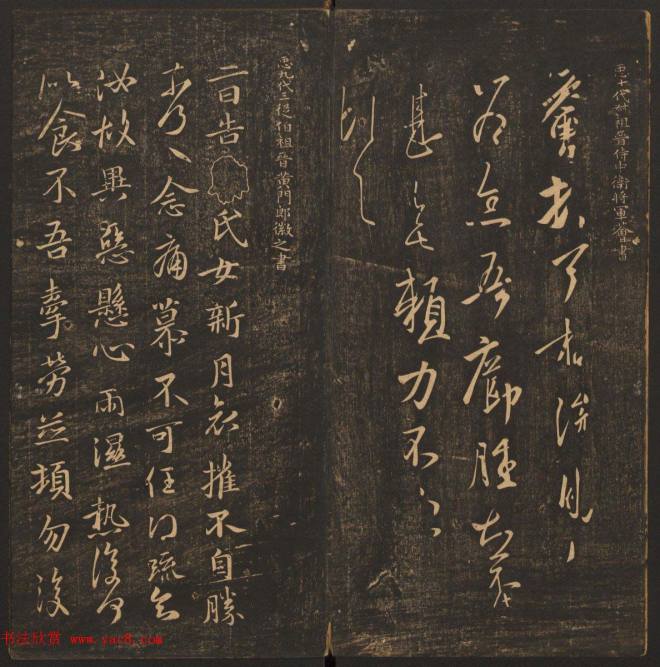 臣十代叔祖晉侍中衛將軍薈書
薈
吾癤腫
甚無賴力不
臣九代三從伯祖晉黃門郎徽之書
二日告氏女新月哀摧不自勝
奈何〻念痛慕不可任得疏知
汝故異惡懸心雨濕熱復何
似食不吾牽勞並頓勿復
书法欣赏 www.yac8.com